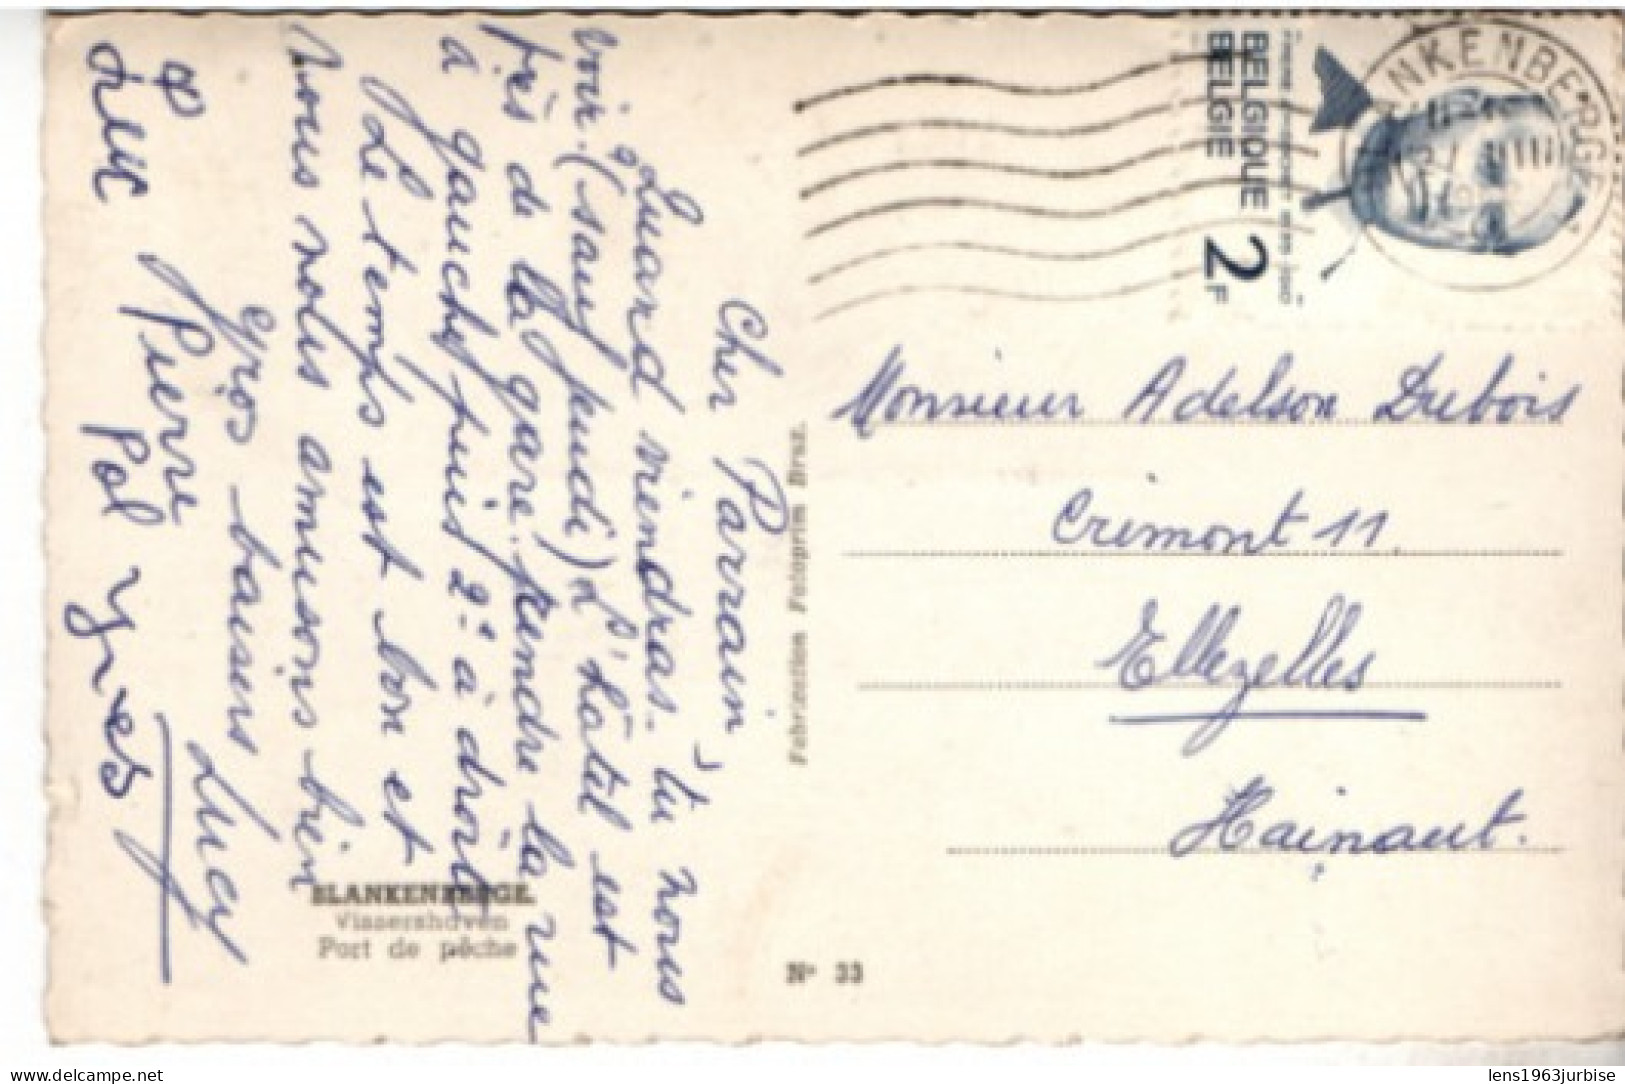 Cher Parrain
Quand viendras-tu nous
voir. (sauf jeudi) L'hôtel est
près de la gare. prendre la rue
à gauche puis 2e à droite
Le temps est bon et
nous nous amusons bien
gros baisers Lucy
Pierre
Luc Pol Yves
BLANKENBERGE.
Vissershaven
Port de pêche
Fabrication Fotoprim Brux.
N° 33
BELGIQUE
BELGIE
2F
BLANKENBERGE
Monsieur Adelson Dubois
Crimont 11.
Ellezelles
Hainaut.
lens1963jurbise